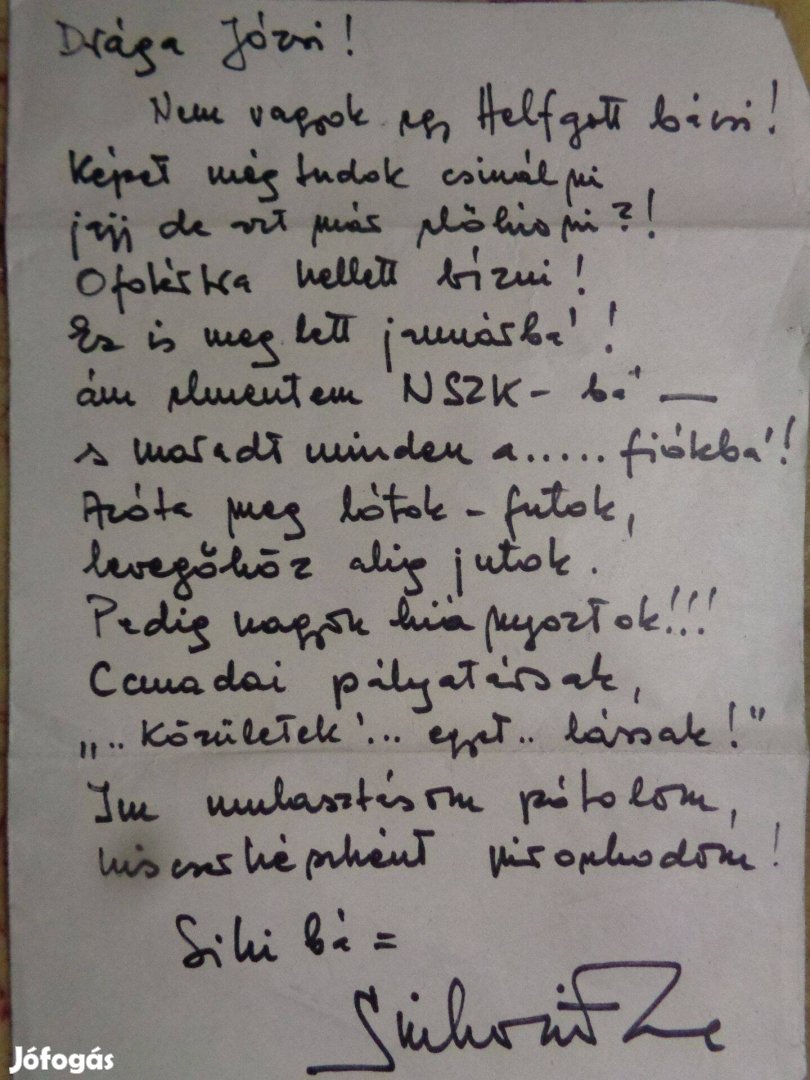 Drága Józsi!
Nem vagyok egy Helfgott bácsi!
Képet még tudok csinálni
jejj de azt már előhivni?!
Ofotértra kellett bízni!
Ez is meg lett januárba'!
ám elmentem NSZK-bá' —
s maradt minden a..... fiókba'!
Azóta meg lótok-futok,
levegőhöz alig jutok.
Pedig nagyon hiányoztok!!!
Canadai pályatársak,
„..közületek'... egyet.. lássak!"
Im mulasztásom pótolom,
kiscserkészként pironkodom!
Siki bá =
Jófogás